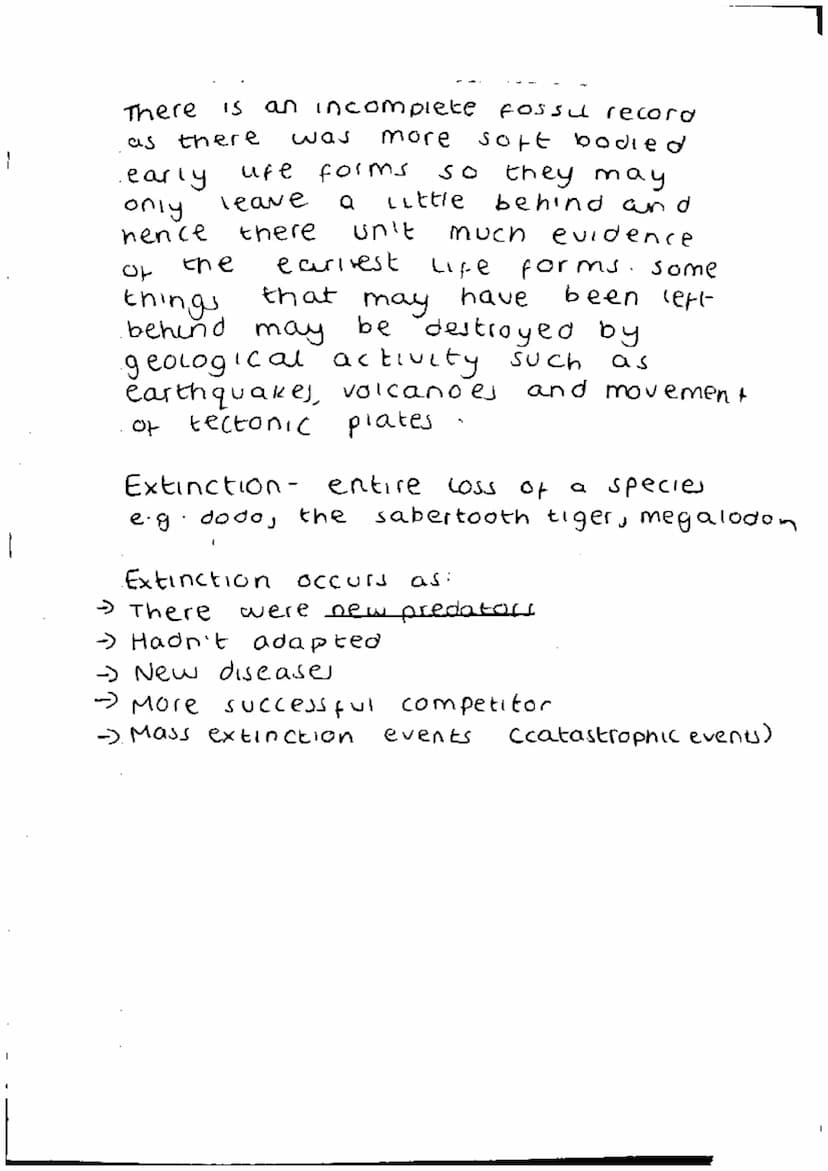 There is an incomplete fossil record
as there was more soft bodied
early life forms so they may
only leave a little behind and
hence there isn't much evidence
of the earliest life forms. Some
things that may have been left
behind may be destroyed by
geological activity such as
earthquakes, volcanoes and movement
of tectonic plates.
Extinction - entire loss of a species
e.g. dodo, the sabertooth tiger, megalodon
Extinction occurs as:
→ There were new predators
→ Hadn't adapted
→ New diseases
→ More successful competitor
→ Mass extinction events (catastrophic events)